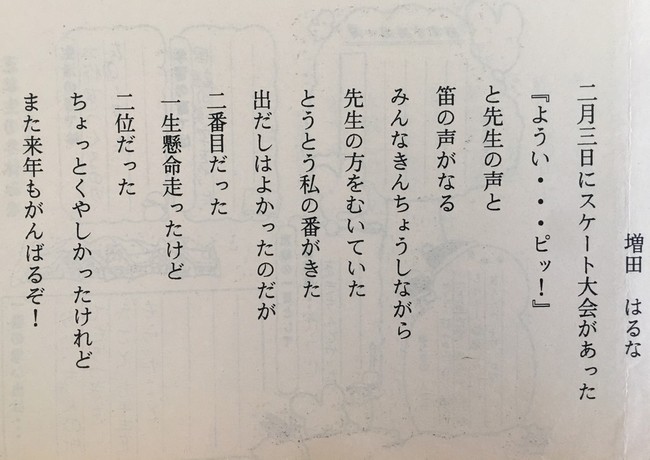 増田 はるな
二月三日にスケート大会があった
『ようい・・・ピッ!』
と先生の声と
笛の声がなる
みんなきんちょうしながら
先生の方をむいていた
とうとう私の番がきた
出だしはよかったのだが
二番目だった
一生懸命走ったけど
二位だった
ちょっとくやしかったけれど
また来年もがんばるぞ!